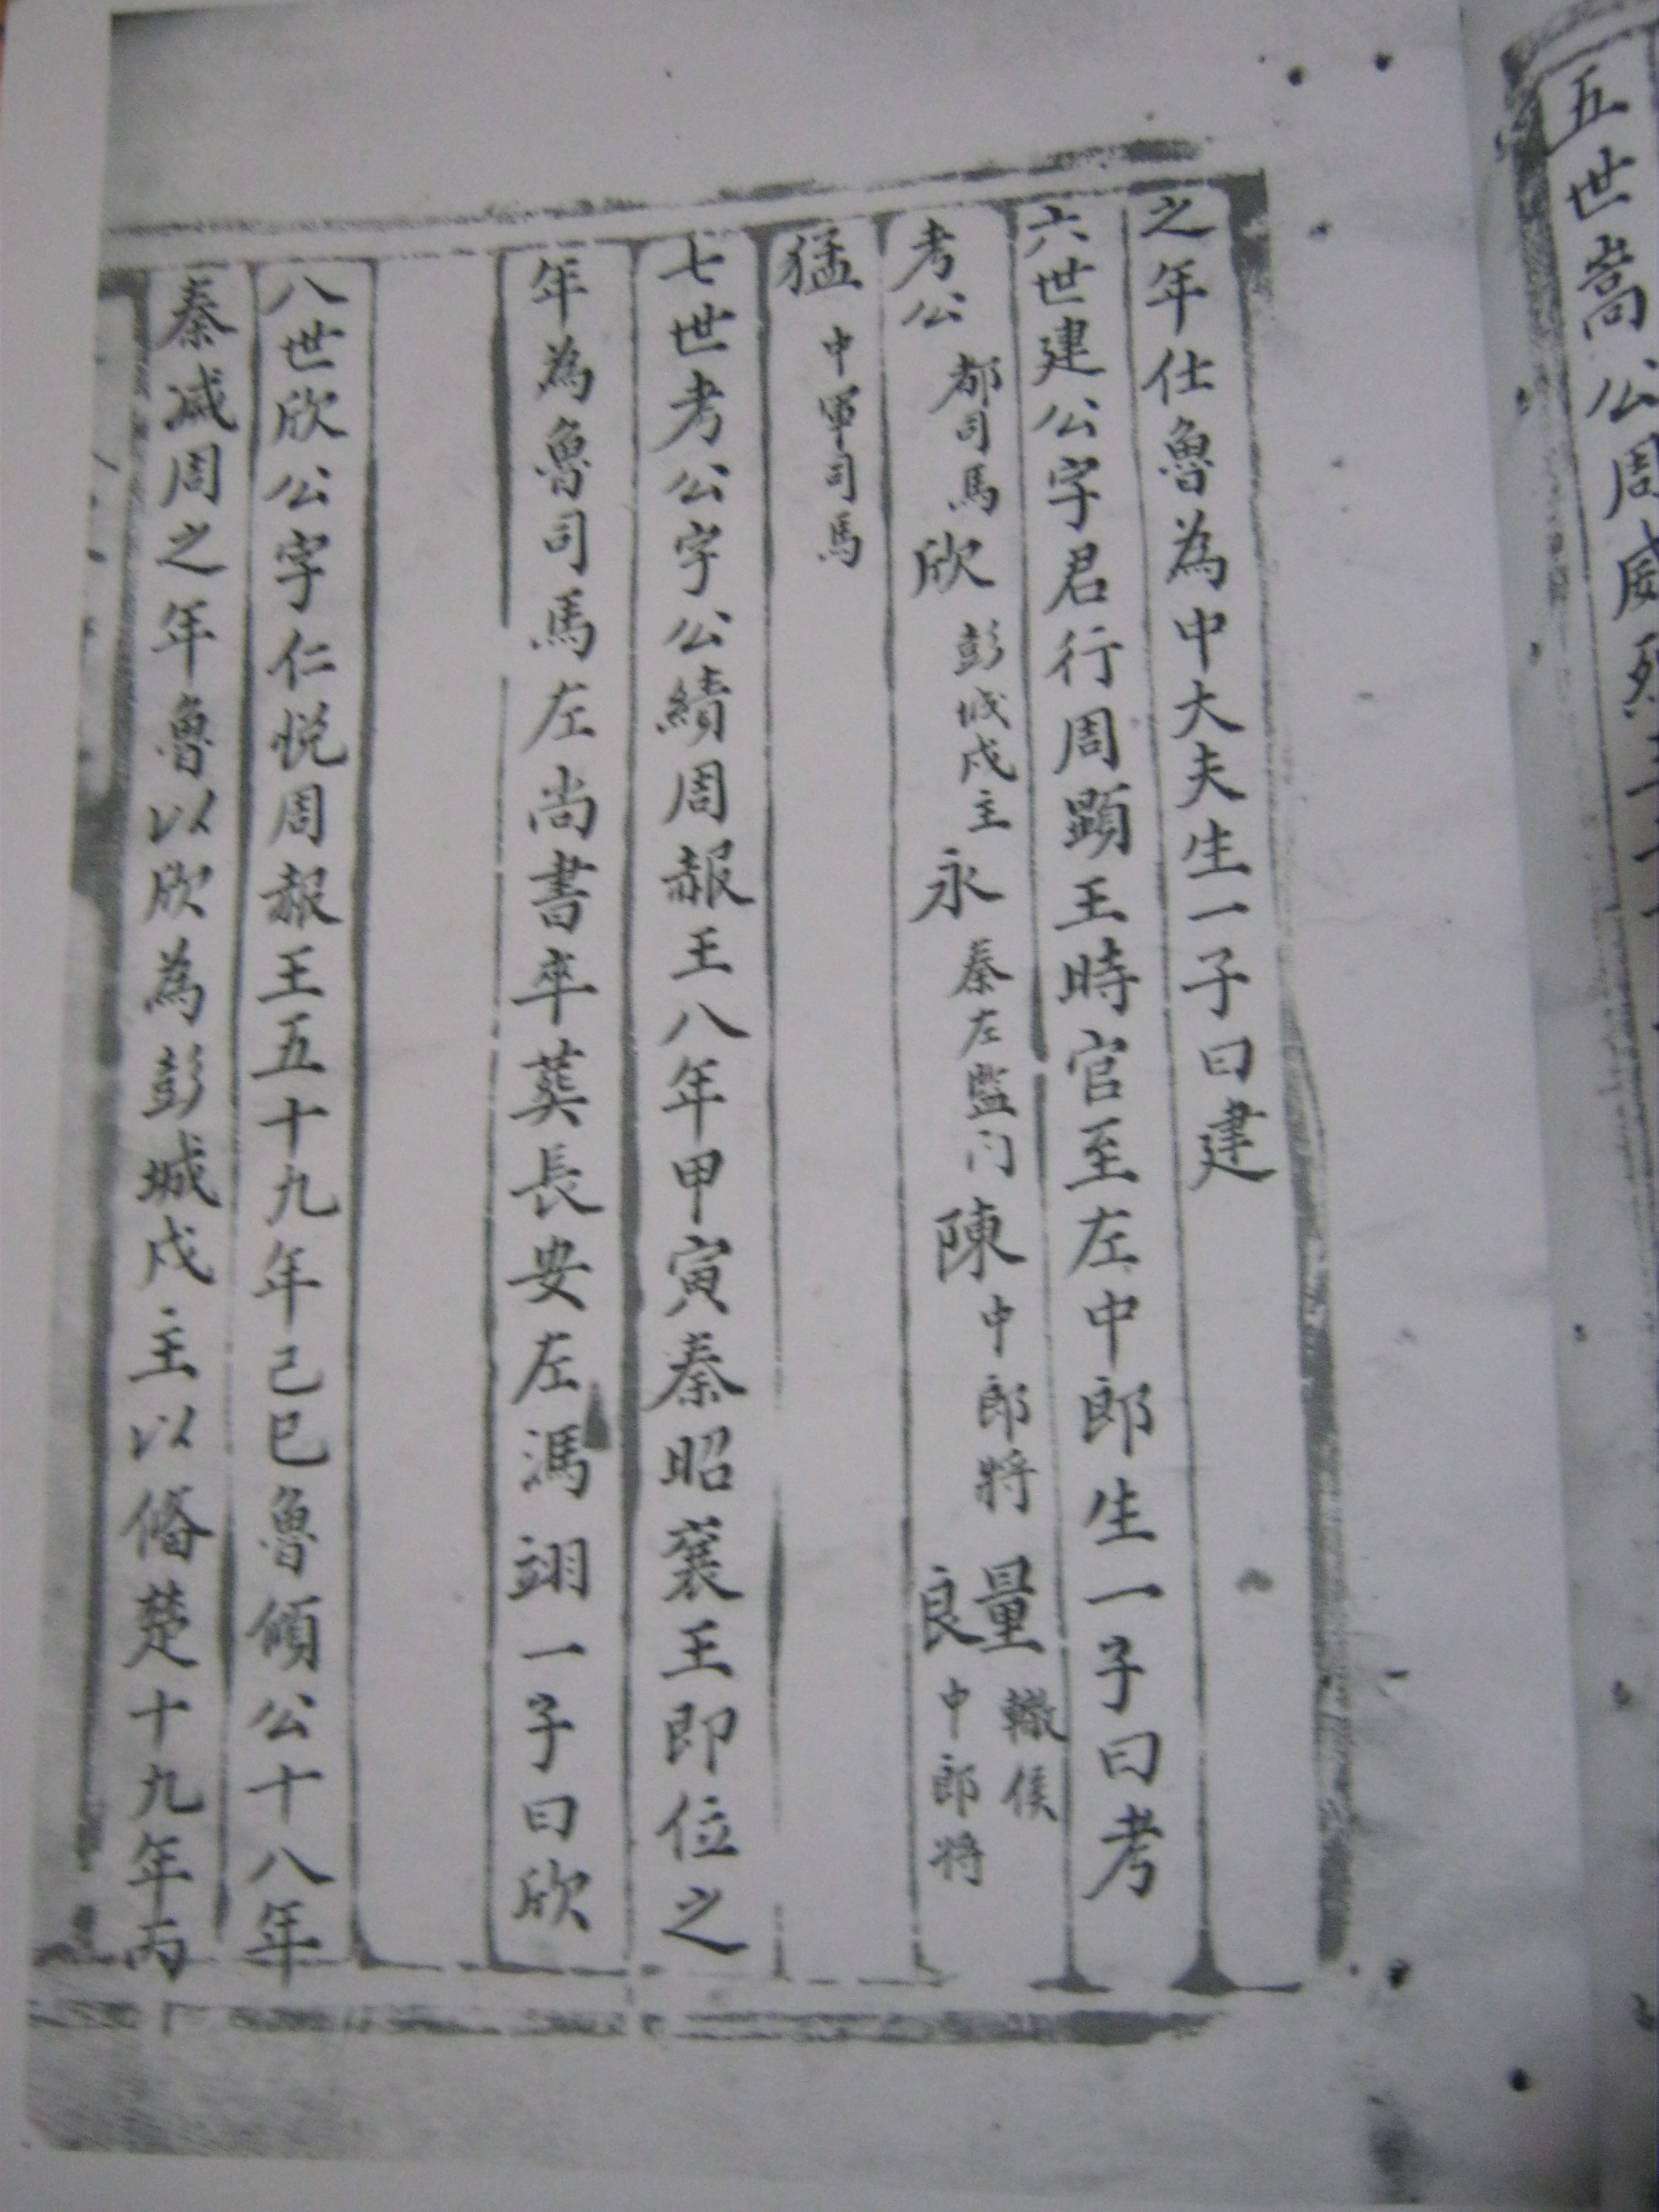 五世嵩公周威烈王
之年仕魯為中大夫生一子曰建
六世建公字君行周顯王時官至左中郎生一子曰考
考公 都司馬 欣 彭城戍主 永 秦左監门 陳 中郎將 量 轍侯 良 中郎將
猛 中軍司馬
七世考公字公績周赧王八年甲寅秦昭襄王即位之
年為魯司馬左尚書卒葬長安左馮翊一子曰欣
八世欣公字仁悅周赧王五十九年己巳魯傾公十八年
秦减周之年魯以欣為彭城戍主以俻楚十九年丙